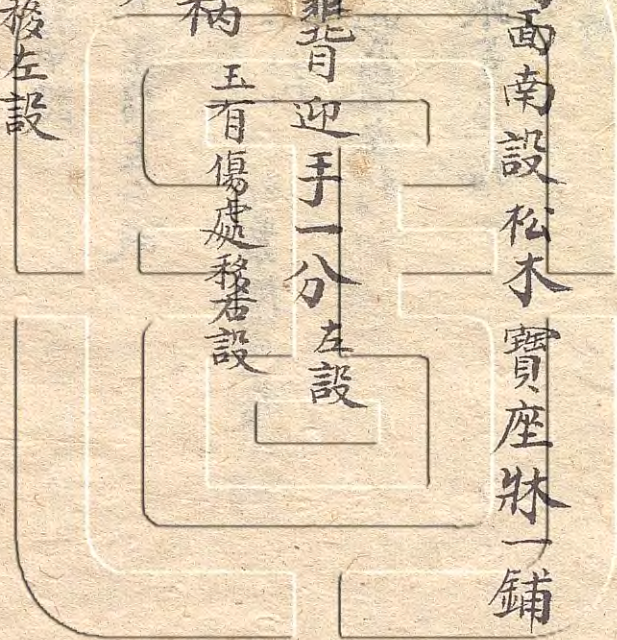 面南設松木寶座牀一鋪
背迎手一分左設
柄玉有傷處移右設
移左設